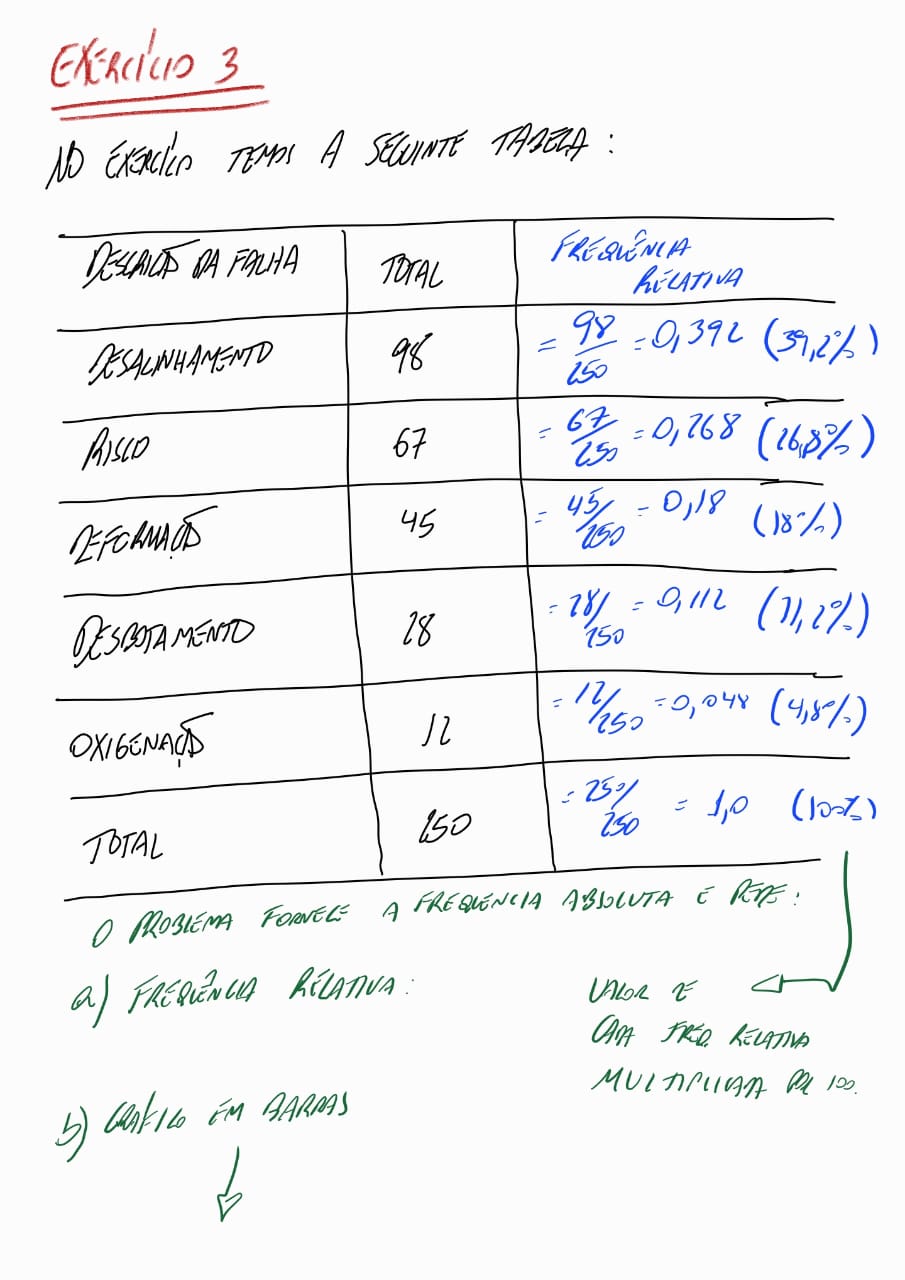 EXERCÍCIO 3
NO EXERCÍCIO TEMOS A SEGUINTE TABELA:
DESCRIÇÃO DA FALHA TOTAL FREQUÊNCIA RELATIVA
DESALINHAMENTO 98 = 98/250 = 0,392 (39,2%)
RISCO 67 = 67/250 = 0,268 (26,8%)
DEFORMAÇÃO 45 = 45/250 = 0,18 (18%)
DESBOTAMENTO 28 = 28/250 = 0,112 (11,2%)
OXIGENAÇÃO 12 = 12/250 = 0,048 (4,8%)
TOTAL 250 = 250/250 = 1,0 (100%)
O PROBLEMA FORNECE A FREQUÊNCIA ABSOLUTA E PEDE:
a) FREQUÊNCIA RELATIVA:
VALOR DE
CADA FREQ. RELATIVA
MULTIPLICADA POR 100.
b) GRÁFICO EM BARRAS